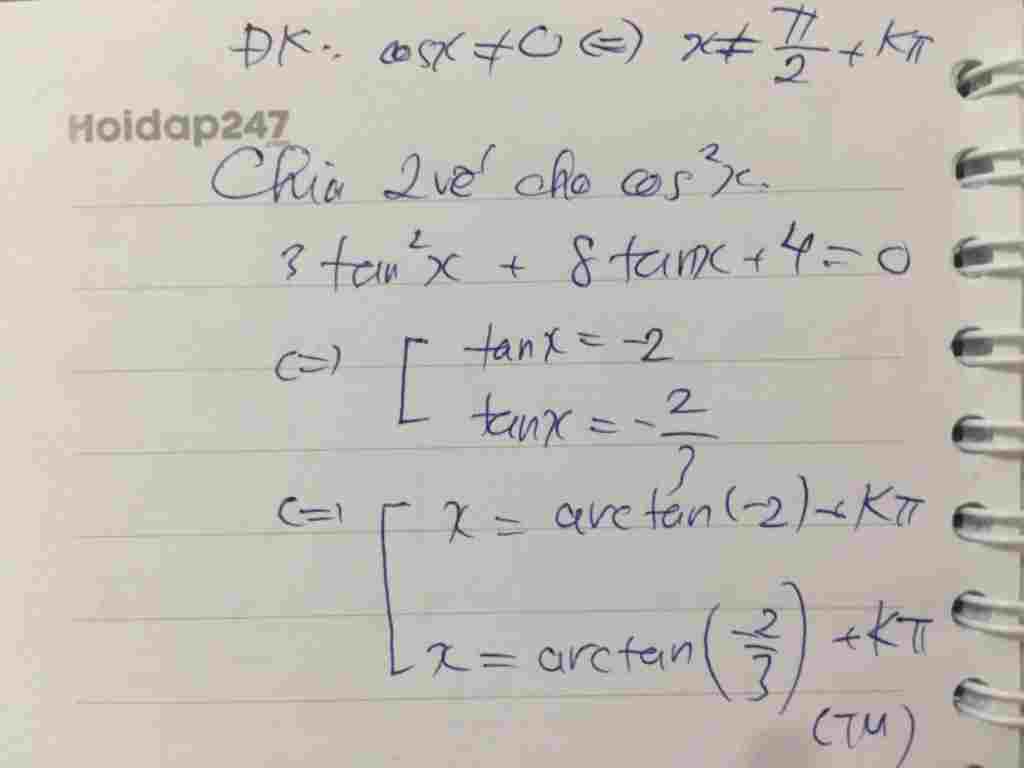 ĐK: cosx ≠ 0 (=) x ≠ π/2 + Kπ
Hoidap247
Chia 2 vế cho cos²x.
3 tan²x + 8 tanx + 4 = 0
(=) [ tanx = -2
tanx = -2/3
(=) [ x = arctan(-2) + Kπ
x = arctan(-2/3) + Kπ
(TM)